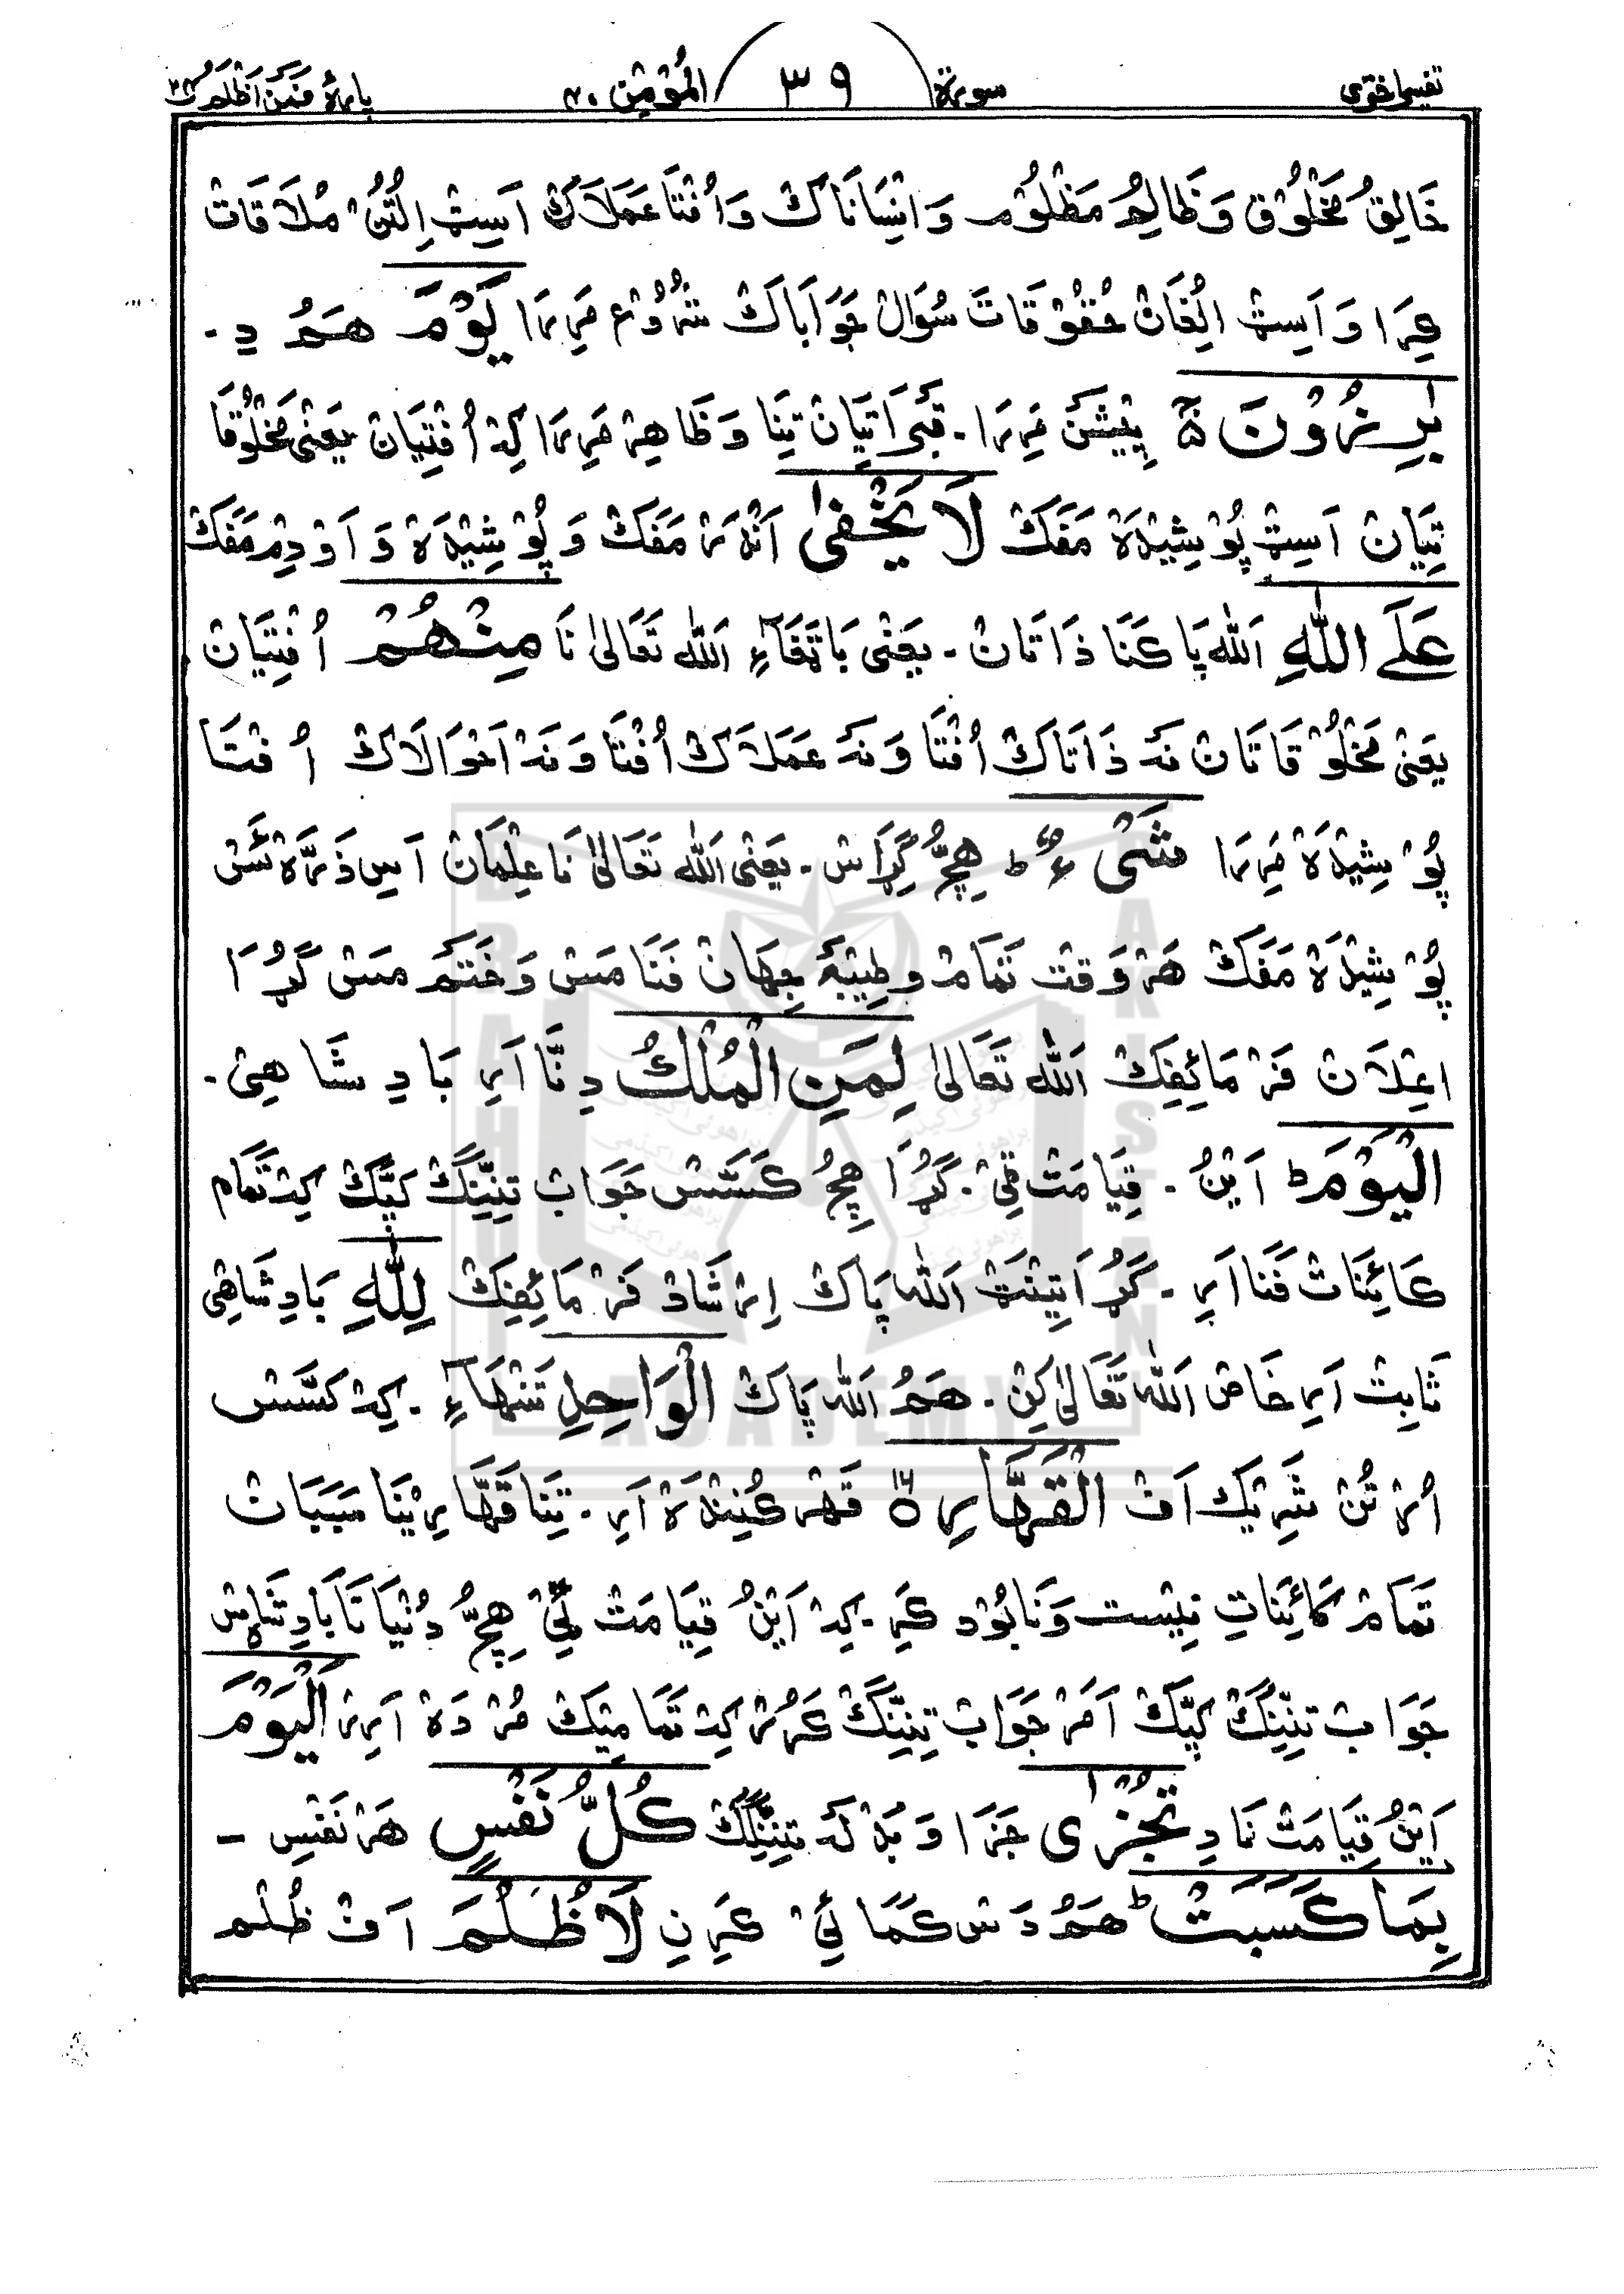 تفسیر اخوی سورة ٣٩ المؤمن ٤٠ پارۀ فمن اظلم ٢٤
خَالِقُ مَخْلُوْق وَ ظَالِمُ مَظْلُوْم وَ اِنْسَانَاكْ وَ اُفْتَا عَمَلَاكْ اَسِیْٹ اِلُتُنْ مُلَاقَات
عِرَا وَ اَسِیْٹ اِلُفَانْ حُقُوْقَاتَ سُوَال جَوَابَاكْ شُرُوْع مَرِیرَا يَوْمَ هَمُ دِ.
بٰرِزُوْنَ ۵ پِیْشَنْ مَرِیرَا. قَبْرَاتِیَانْ تِنَا وَ ظَاهِرْ مَرِیرَا كِہْ اُفْتِیَانْ یَعْنِیْ مَخْلُوْقَا
تِیَانْ اَسِیْٹ پُوْشِیْدَہْ مَفَكْ لَا يَخْفٰى اَنْدَرْ مَفَكْ وَ پُوْشِیْدَہْ وَ اَوْدِمْ مَفَكْ
عَلَى اللّٰهِ اَللّٰہ پَا كَنَا ذَاتَانْ. یَعْنِیْ بَاتِفَآءِ اَللّٰہ تَعَالٰی نَا مِنْهُمْ اُفْتِیَان
یَعْنِیْ مَخْلُوْقَاتَانْ نَہ ذَاتَاكْ اُفْتَا وَ نَہ عَمَلَاكْ اُفْتَا وَ نَہْ اَحْوَالَاكْ اُفْتَا
پُوْشِیْدَہْ مَرِیرَا شَىْءٌ ؕ هِچُّ گِڑَاس. یَعْنِیْ اَللّٰہ تَعَالٰی نَا عِلْمَانْ اَسِ ذَرَّہْ ئَسْ
پُوْشِیْدَہْ مَفَكْ هَرْ وَقْت تَمَامْ وَطِیْبَہْ جِهَانْ فَنَا مَسْ وَ خَتَمْ مَسْ گُڑَا
اِعْلَانْ فَرْمَائِفِكْ اَللّٰہ تَعَالٰی لِمَنِ الْمُلْكُ دِنَّا اَرِ بَادِشَاهِیْ.
الْيَوْمَ ؕ اَیْنُ. قِیَامَتْ ٹِیْ. گُڑَا هِچُ كَسَّسْ جَوَاب تِیِنِّنگْ كَپَّكْ كِہْ تَمَام
كَائِنَاتْ فَنَا اَرِ. گُڑَا تِیْنَتْ اَللّٰہ پَاكْ اِرْشَادْ فَرْمَائِفِكْ لِلّٰهِ بَادِشَاهِیْ
ثَابِتْ اَرِ خَاصْ اَللّٰہ تَعَالٰی كِنْ. هَمُ اَللّٰہ پَاكْ الْوَاحِدِ تَنْهَآءِ. كِہْ كَسَّسْ
اُرْتُنْ شَرِیْكْ اَفْ الْقَهَّارِ ۝۱۶ قَهْر كُنِیْنْدَہْ اَرِ. تِنَا قَهَّارِیْنَا سَبَبَاتْ
تَمَامْ كَائِنَاتِ نِیْسْت وَ نَابُوْد كَرِ. كِہْ اَیْنُ قِیَامَتْ ٹِیْ هِچُّ دُنْیَا نَا بَادِشَاہسْ
جَوَاب تِیِنِّنگْ كَپَّكْ اَمَرْ جَوَاب تِیِنِّنگْ كَرُرْ كِہْ تَمَامِیْكْ مُرْدَہْ اَرِرْ اَلْيَوْمَ
اَیْنُ قِیَامَتْ نَا دِ تُجْزٰى جَزَا وَ بَدْلَہ تِنِنِّگكْ كُلُّ نَفْسٍ هَرْ نَفْسِ -
بِمَا كَسَبَتْ ؕ هَمُ دَسْ كَمَائِیْ كَرِنِ لَا ظُلْمَ اَفْ ظُلْم